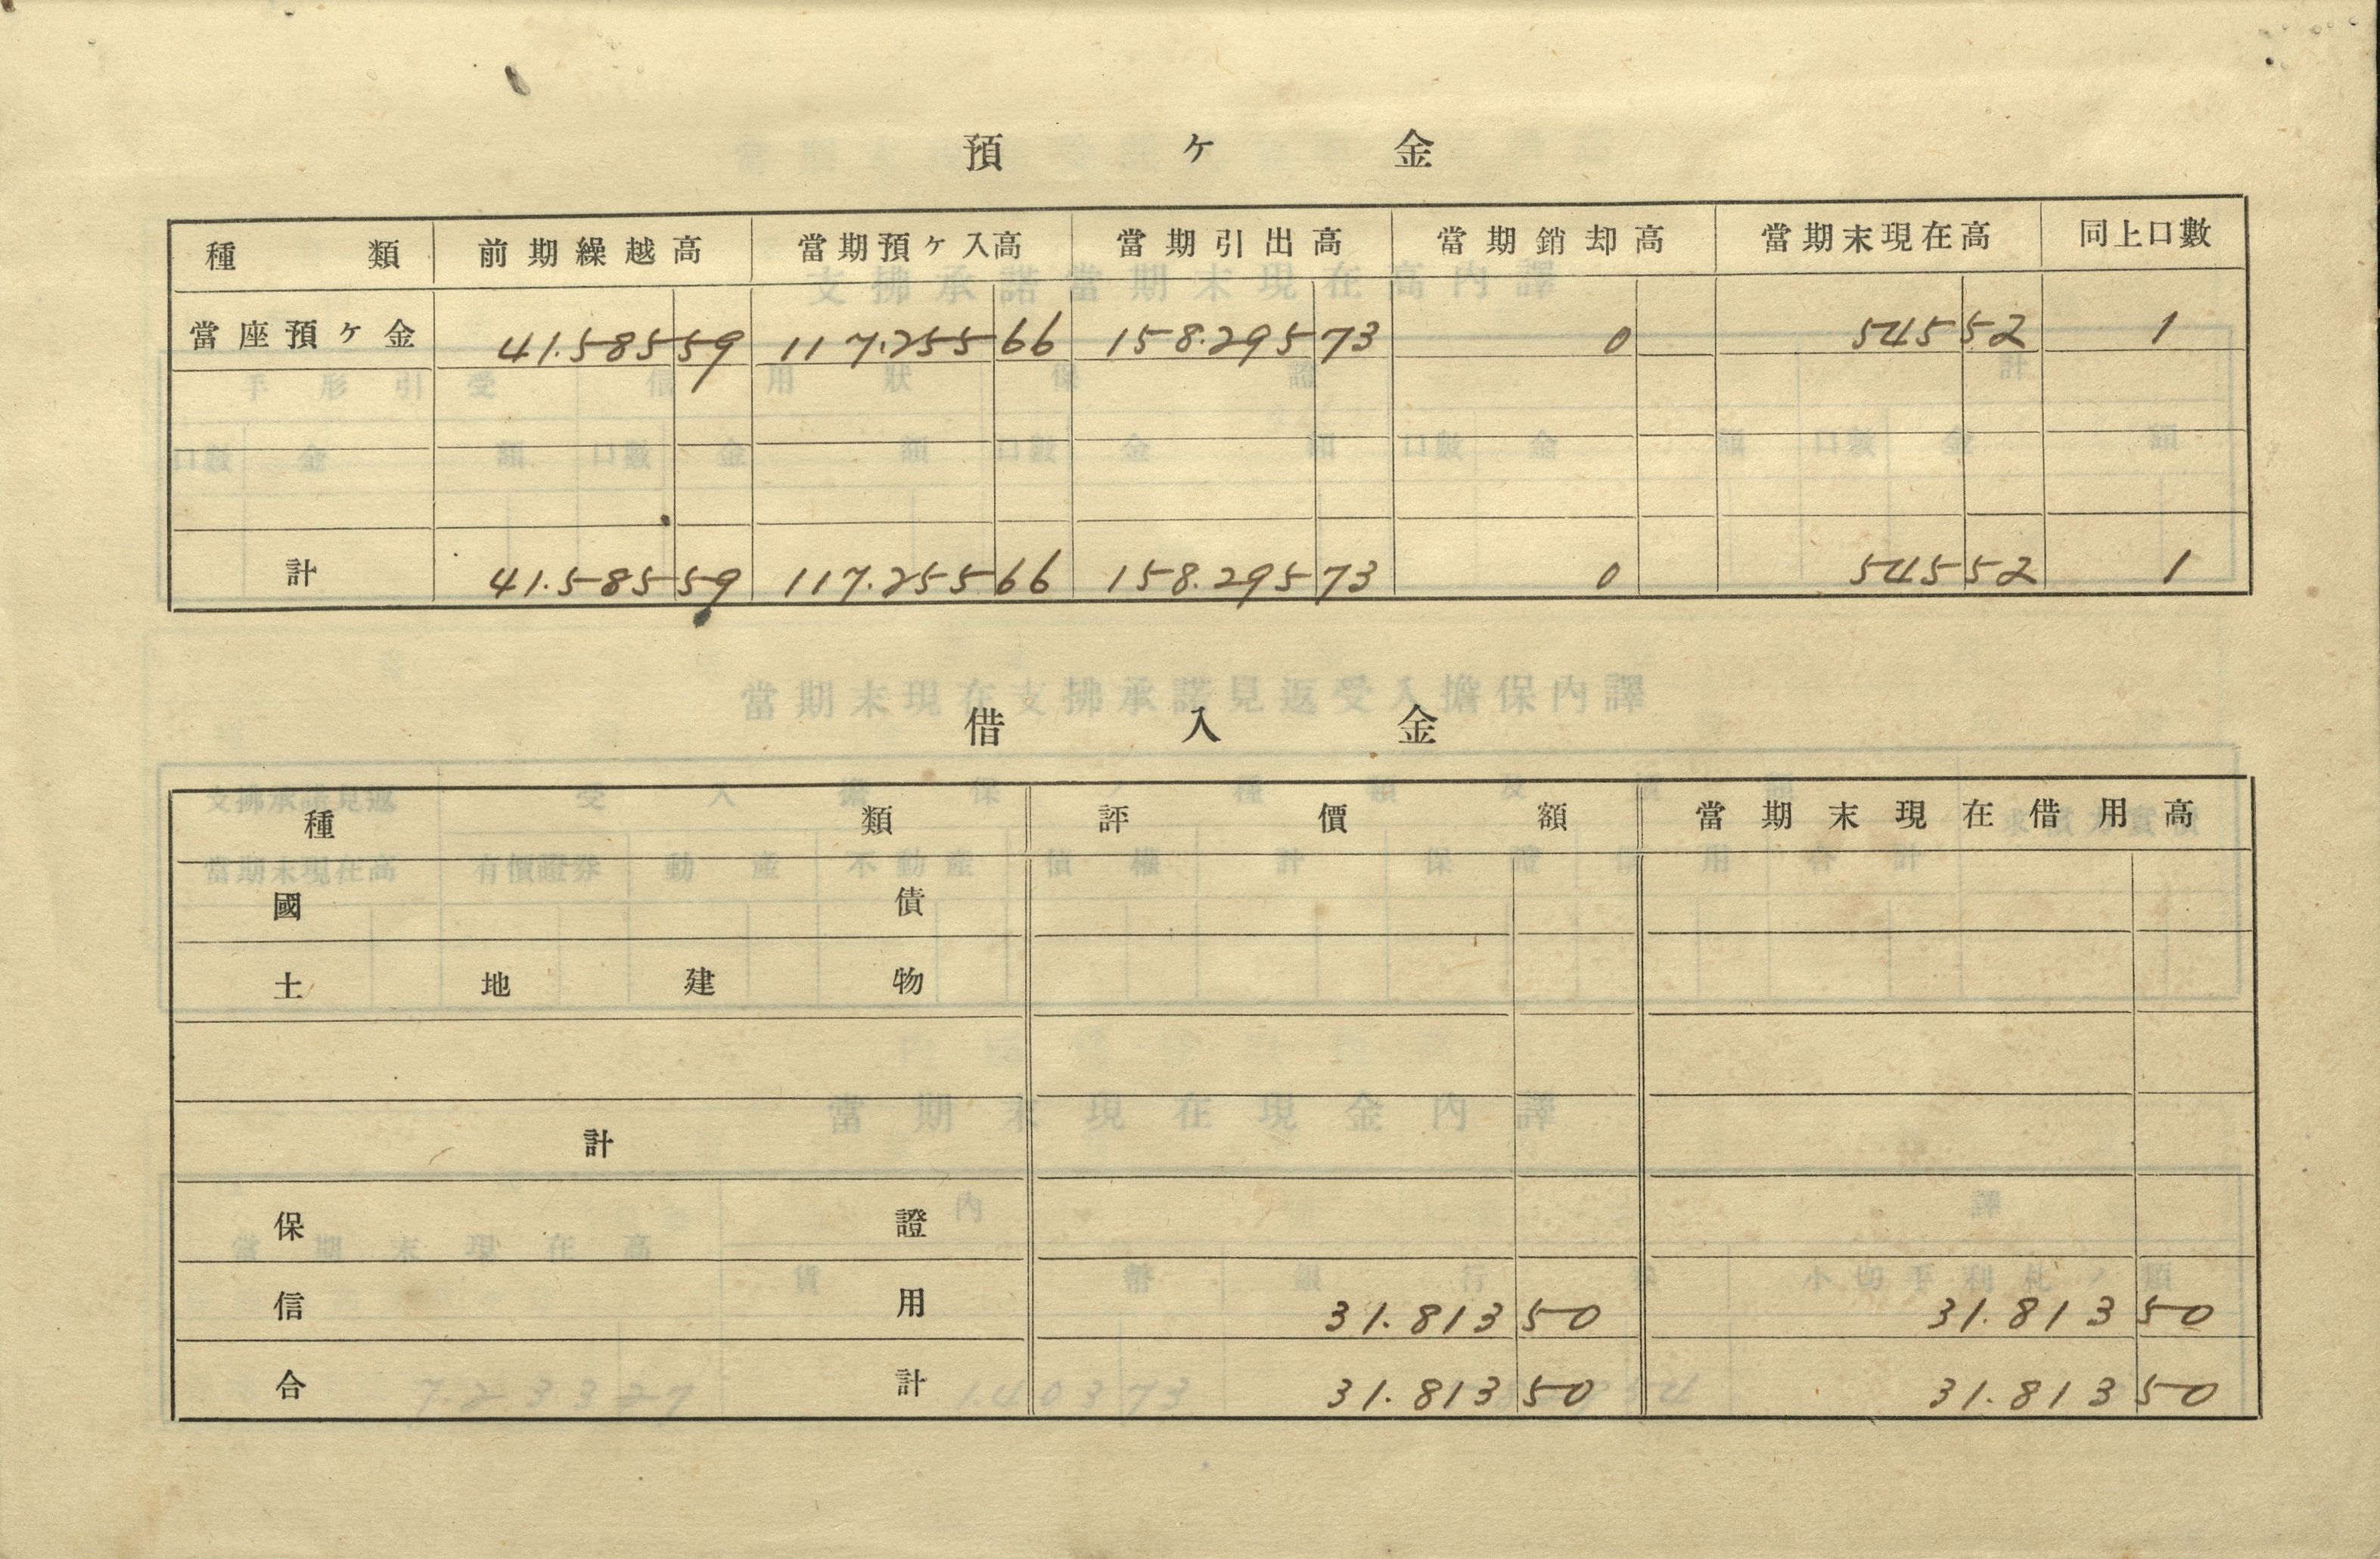 預ケ金
種類 前期繰越高 當期預ケ入高 當期引出高 當期銷却高 當期末現在高 同上口數
當座預ケ金 41.585 59 117.255 66 158.295 73 0 545 52 1
計 41.585 59 117.255 66 158.295 73 0 545 52 1
借入金
種類 評價額 當期末現在借用高
國債
土地建物
計
保證
信用 31.813 50 31.813 50
合計 31.813 50 31.813 50